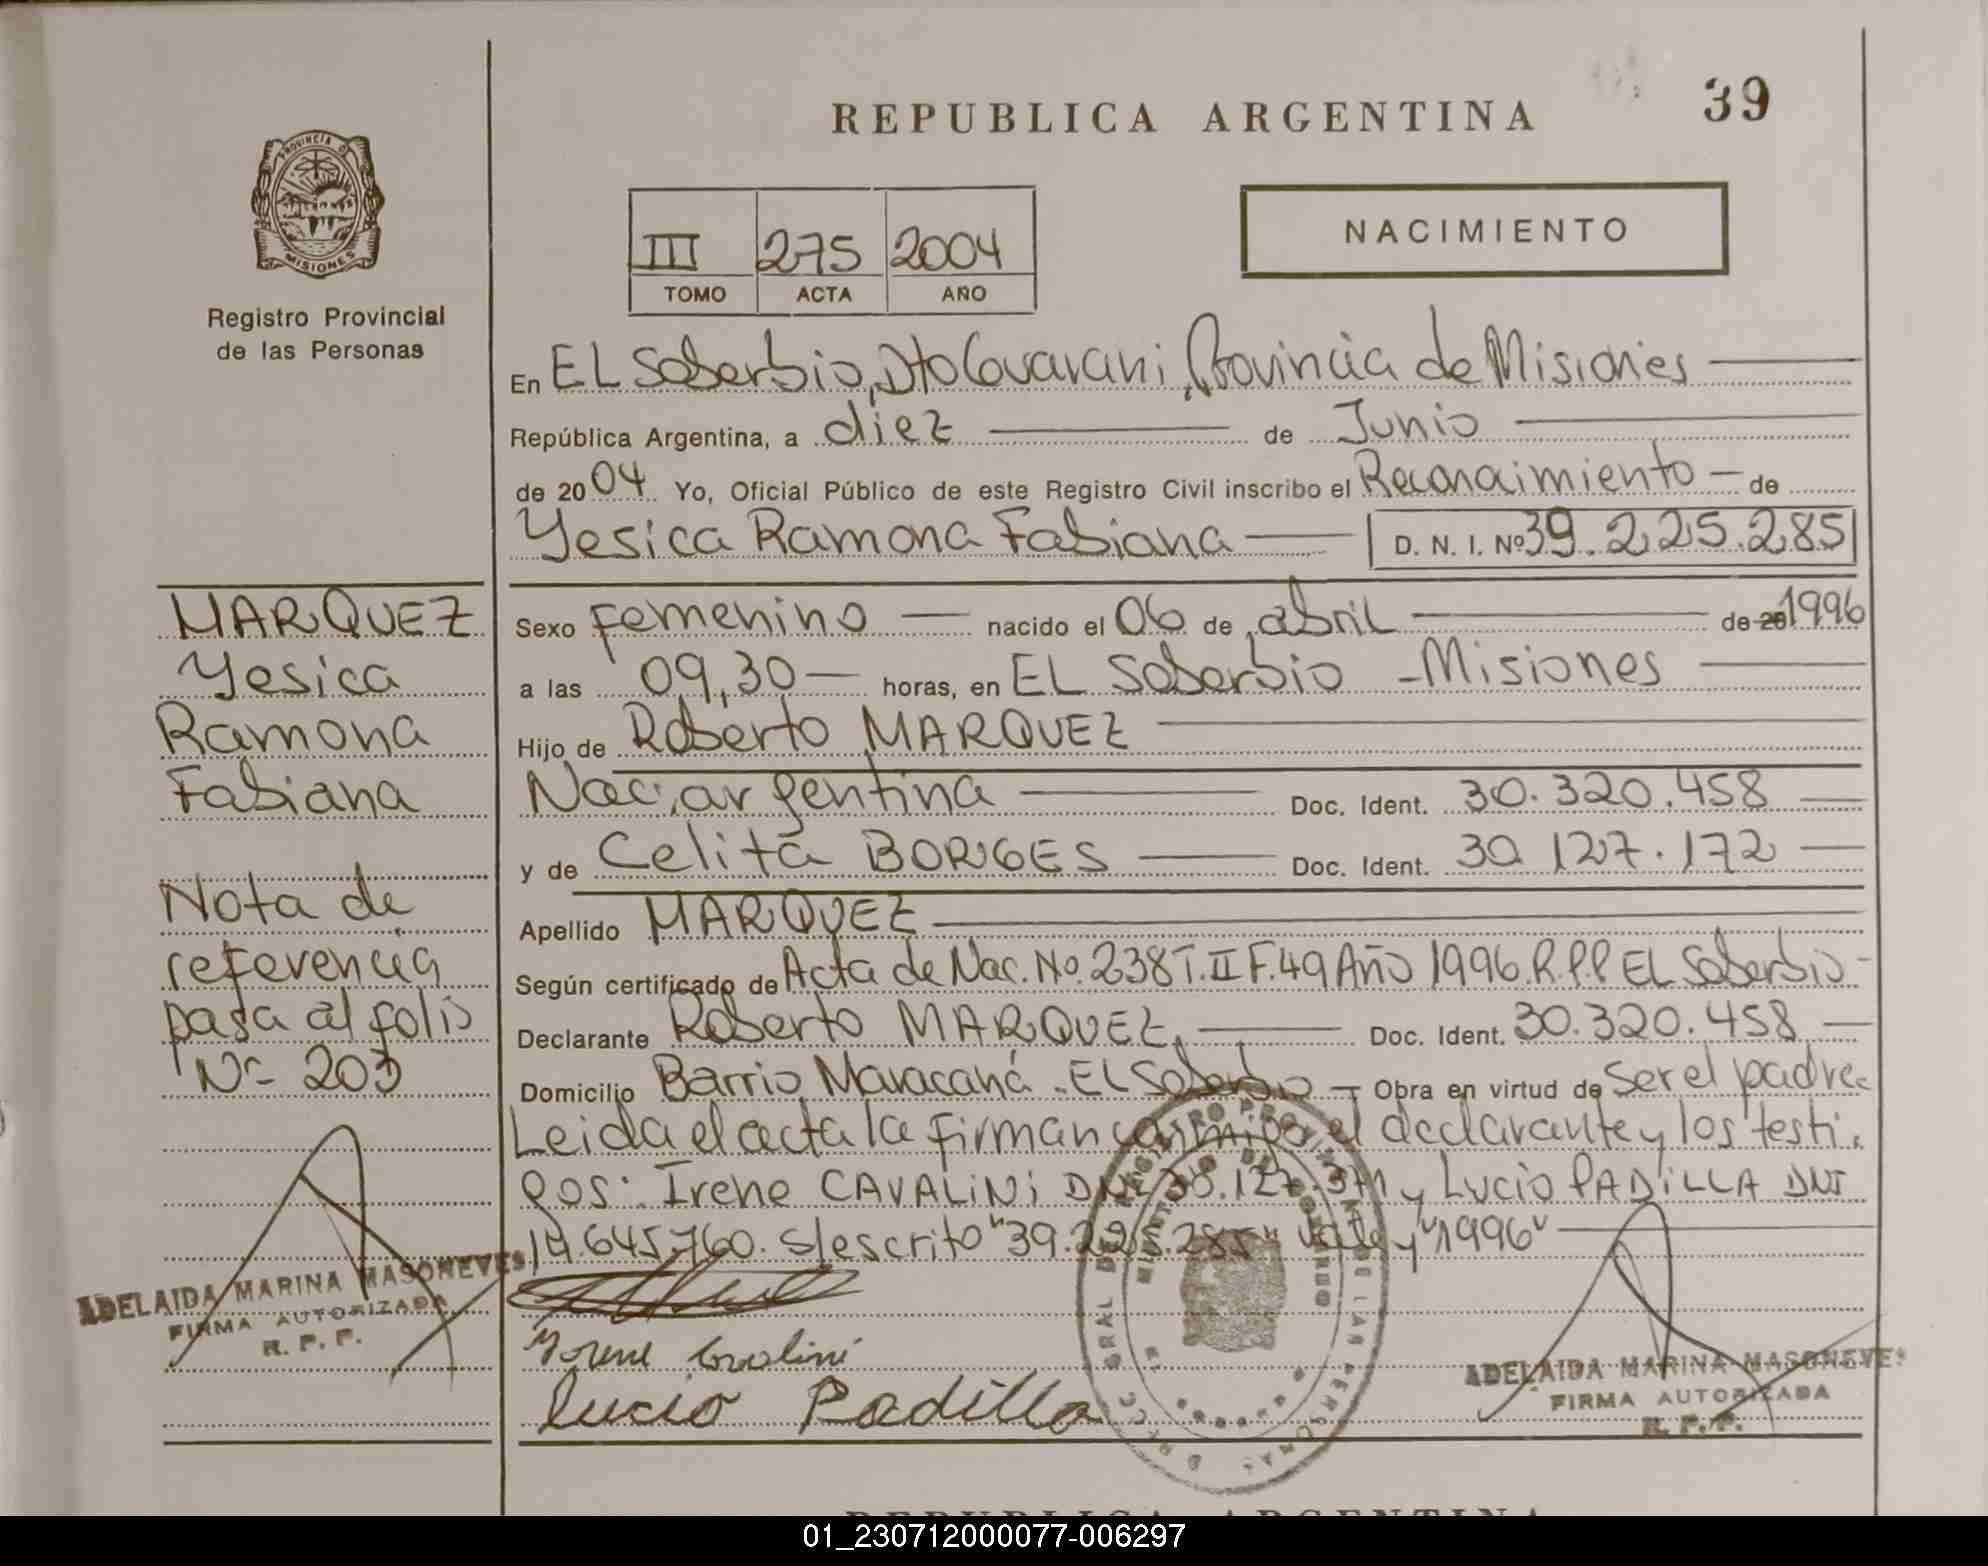 REPUBLICA ARGENTINA
39
PROVINCIA DE
MISIONES
Registro Provincial
de las Personas
III 275 2004
TOMO ACTA AÑO
NACIMIENTO
En EL Soberbio, Dto Guarani, Provincia de Misiones
República Argentina, a diez de Junio
de 2004 Yo, Oficial Público de este Registro Civil inscribo el Reconocimiento de
Yesica Ramona Fabiana D. N. I. Nº 39.225.285
Sexo femenino nacido el 06 de abril de 20 1996
a las 09,30 horas, en EL Soberbio - Misiones
Hijo de Roberto MARQUEZ
Nac. argentina Doc. Ident. 30.320.458
y de Celita BORGES Doc. Ident. 30 127.172
Apellido MARQUEZ
Según certificado de Acta de Nac. No. 238 T. II F. 49 Año 1996. R.P.P EL Soberbio-
Declarante Roberto MARQUEZ. Doc. Ident. 30.320.458
Domicilio Barrio Maracaná - EL Soberbio Obra en virtud de Ser el padre-
Leida el acta la firman conmigo el declarante y los testi-
gos: Irene CAVALiNi DNI 38.127.371 y Lucio PADiLLA DNI
14.645.760. s/escrito "39.225.285" vale y "1996"
MARQUEZ
Yesica
Ramona
Fabiana
Nota de
referencia
pasa al folio
Nº 203
ADELAIDA MARINA MASONEVES
FIRMA AUTORIZADA
R. P. P.
Irene Cavalini
Lucio Padilla
ADELAIDA MARINA MASONEVES
FIRMA AUTORIZADA
R. P. P.
REPUBLICA ARGENTINA
01_230712000077-006297